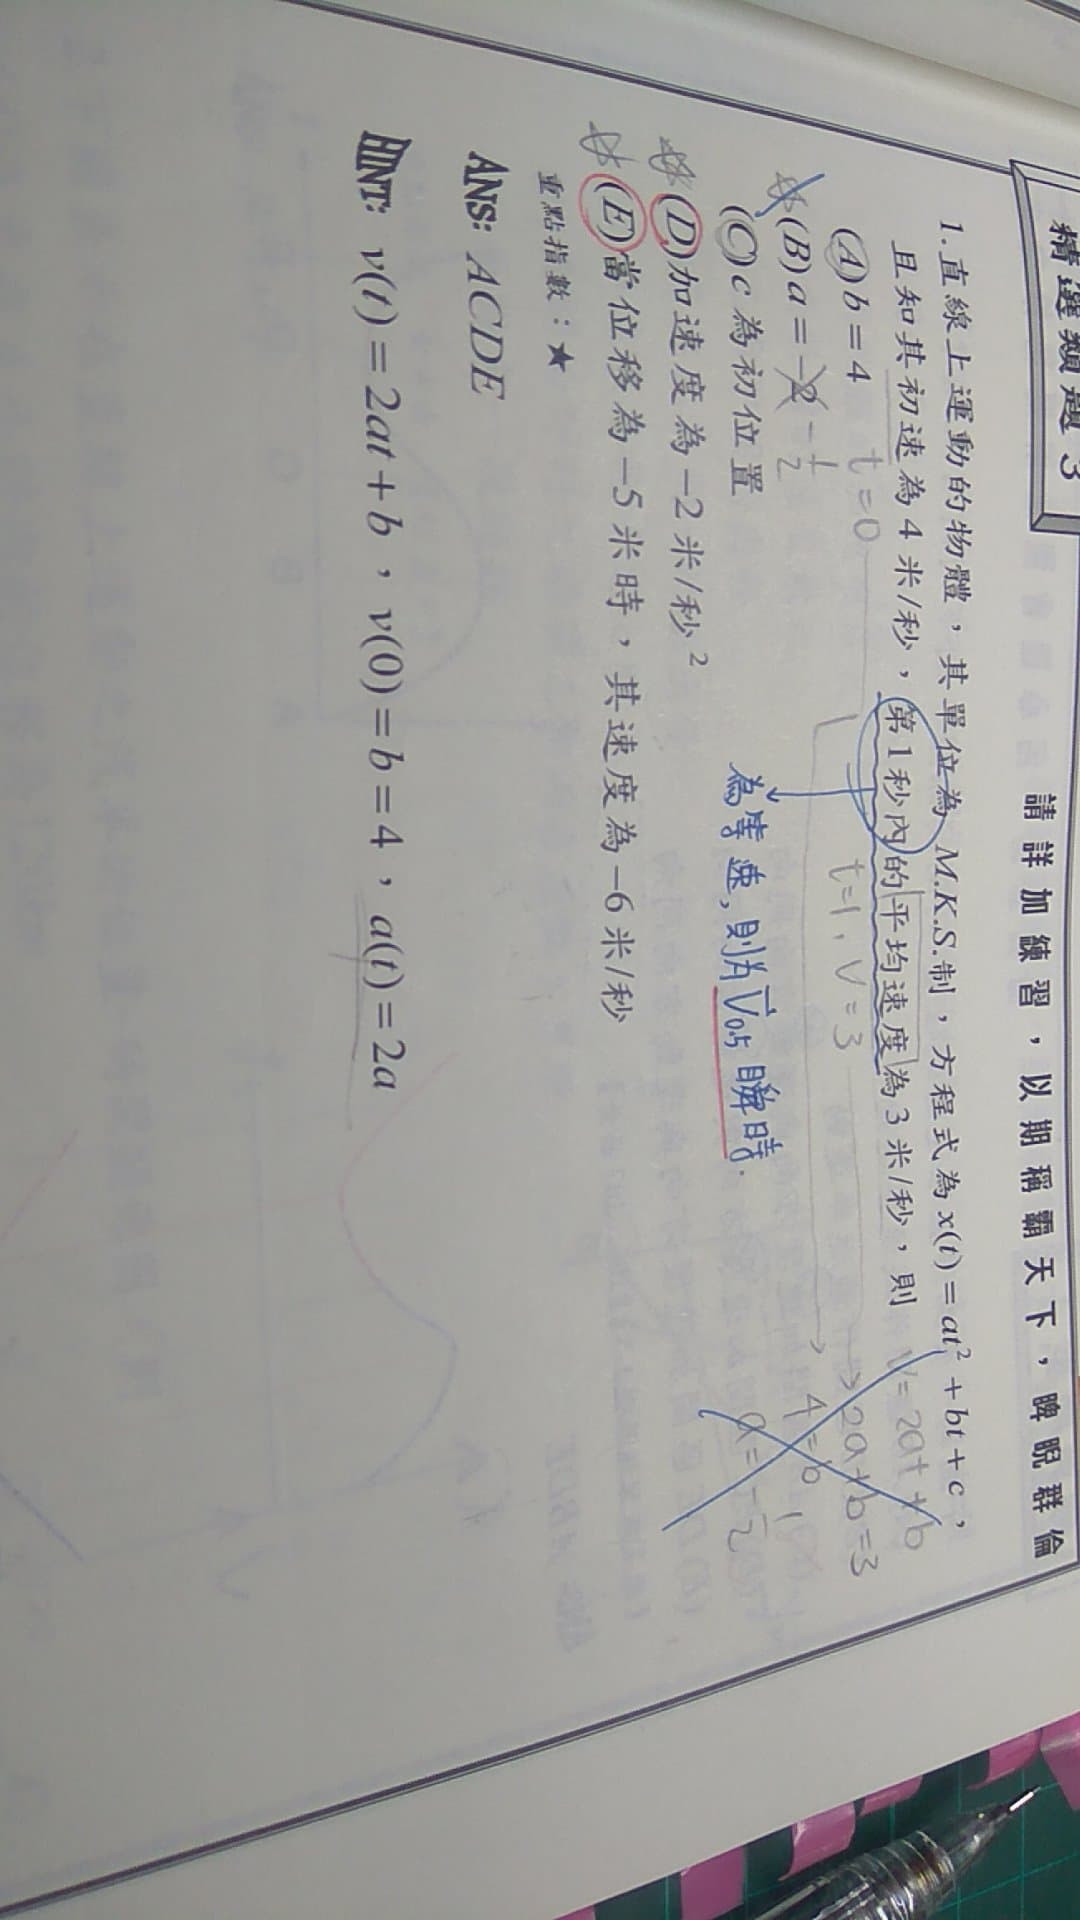 精選類題 3
請詳加練習，以期稱霸天下，睥睨群倫
1.直線上運動的物體，其單位為 M.K.S.制，方程式為 x(t)=at²+bt+c，
且知其初速為 4 米/秒，第 1 秒內的平均速度為 3 米/秒，則
V=2at+b
t=0
t=1, V=3
→2a+b=3
→4=b
a=-1/2
(A)b=4
(B)a=-2
-1/2
(C)c 為初位置
為等速，則為V0.5瞬時.
(D)加速度為-2 米/秒²
(E)當位移為-5 米時，其速度為-6 米/秒
重點指數：★
ANS: ACDE
HINT: v(t)=2at+b，v(0)=b=4，a(t)=2a